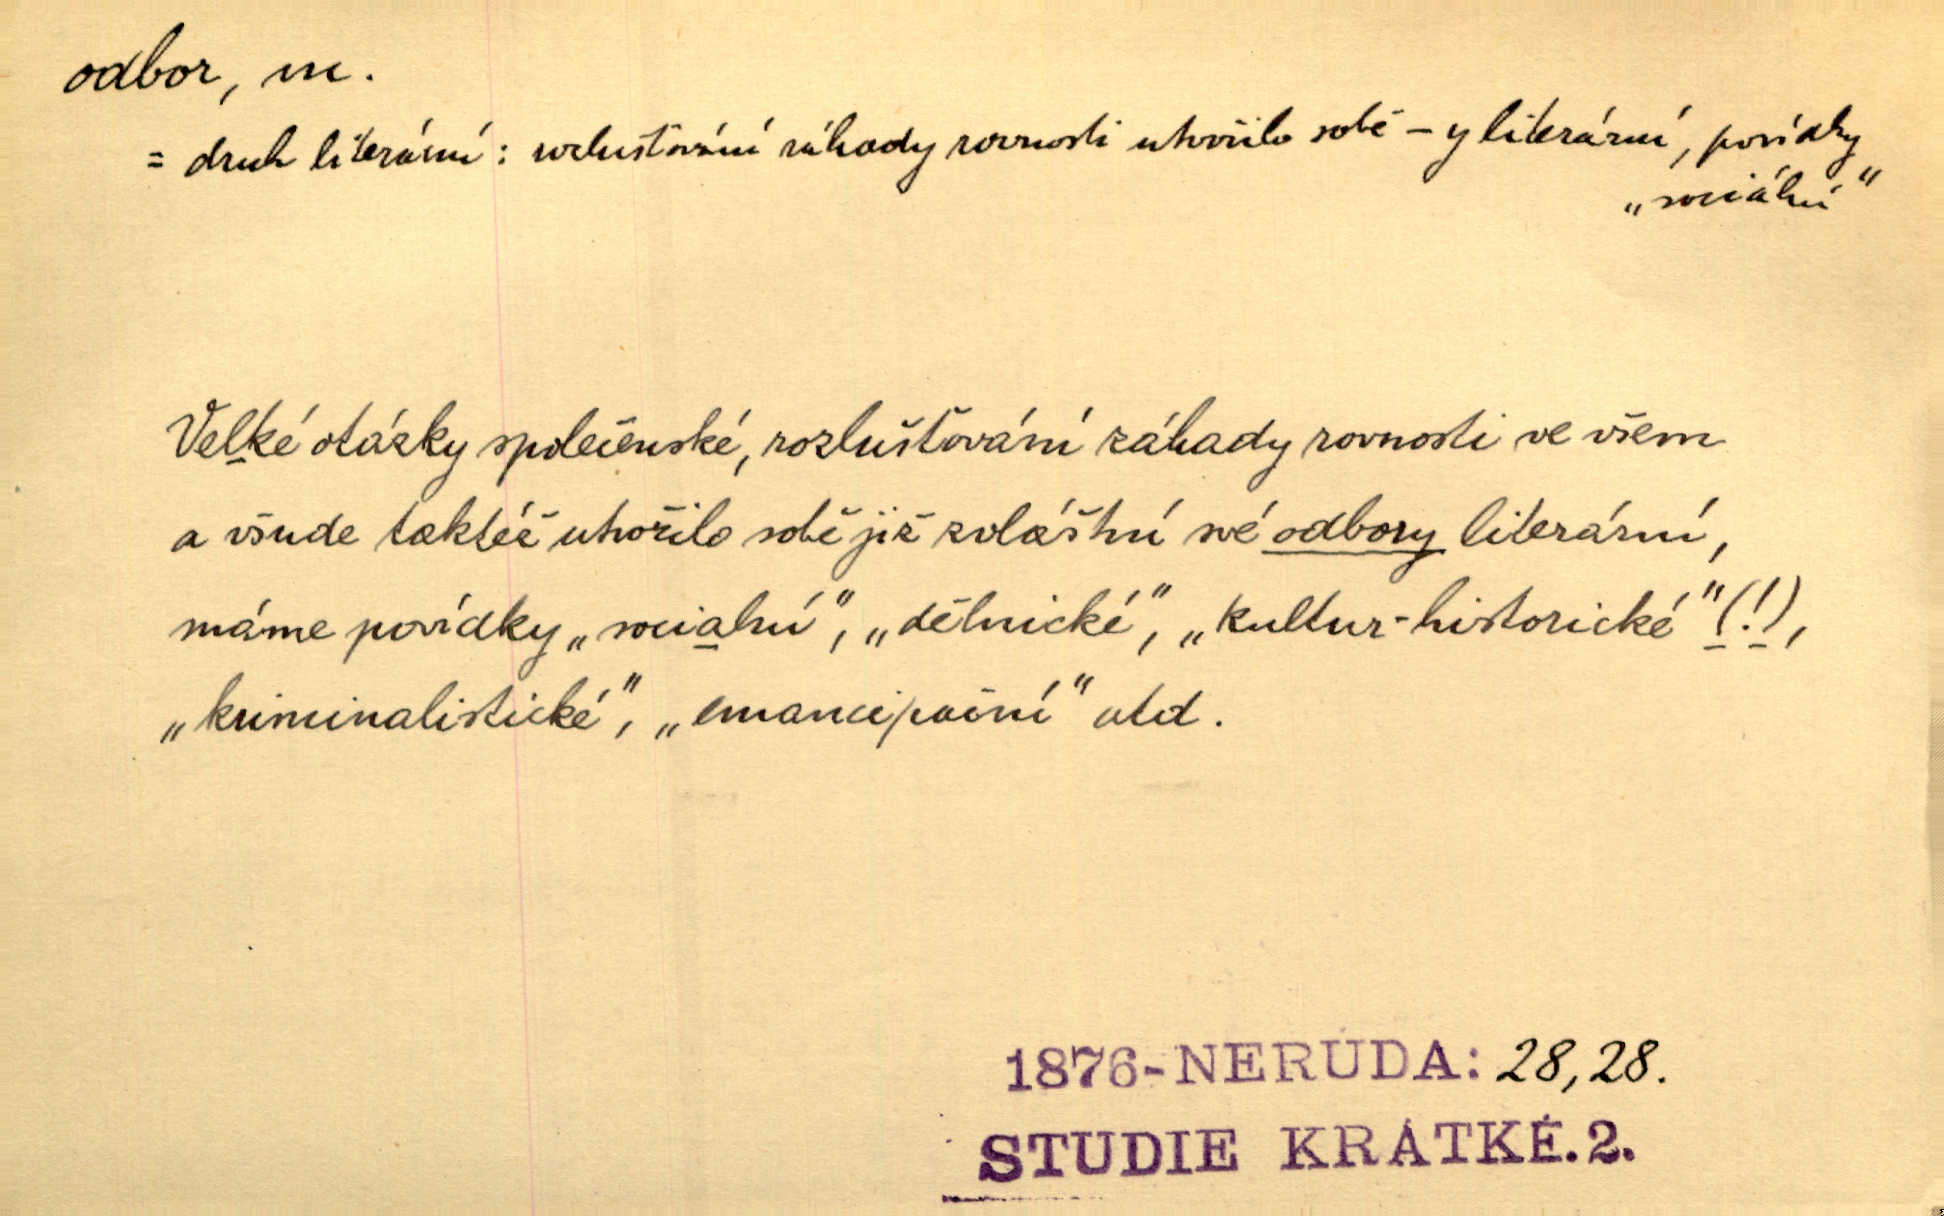 odbor, m.
= druh literární: rozlušťování záhady rovnosti utvořilo sobě – y literární, povídky
„sociální“
Velké otázky společenské, rozlušťování záhady rovnosti ve všem
a všude taktéž utvořilo sobě již zvláštní své odbory literární,
máme povídky „socialní“, „dělnické“, „kultur-historické“ (!),
„kriminalistické“, „emancipační“ atd.
1876-NERUDA: 28,28.
STUDIE KRÁTKÉ.2.